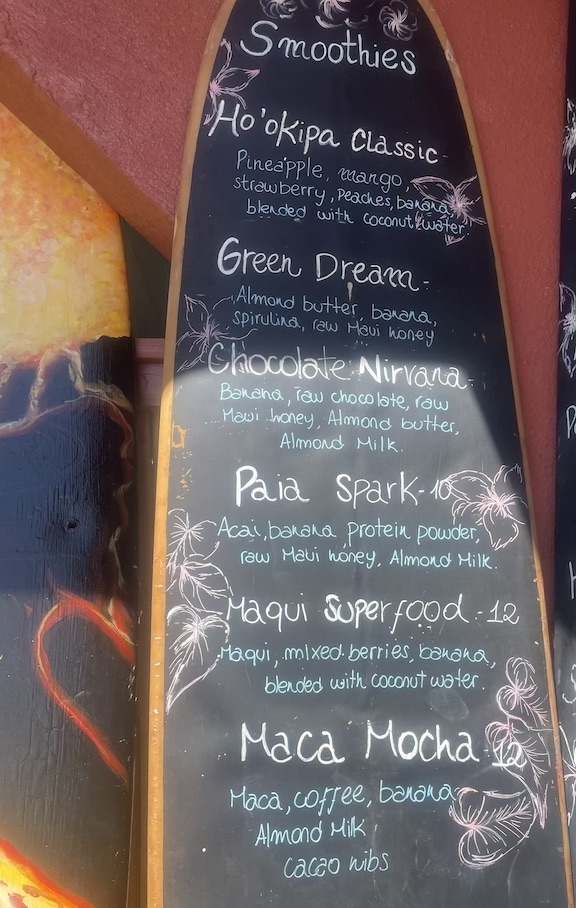 Smoothies
Ho'okipa Classic-
Pineapple, mango,
strawberry, peaches, banana,
blended with coconut water.
Green Dream-
Almond butter, banana,
spirulina, raw Maui honey
Chocolate Nirvana-
Banana, raw chocolate, raw
Maui honey, Almond butter,
Almond Milk.
Paia Spark-10
Acai, banana, protein powder,
raw Maui honey, Almond Milk.
Maqui Superfood-12
Maqui, mixed berries, banana,
blended with coconut water.
Maca Mocha-12
Maca, coffee, banana
Almond Milk
cacao nibs